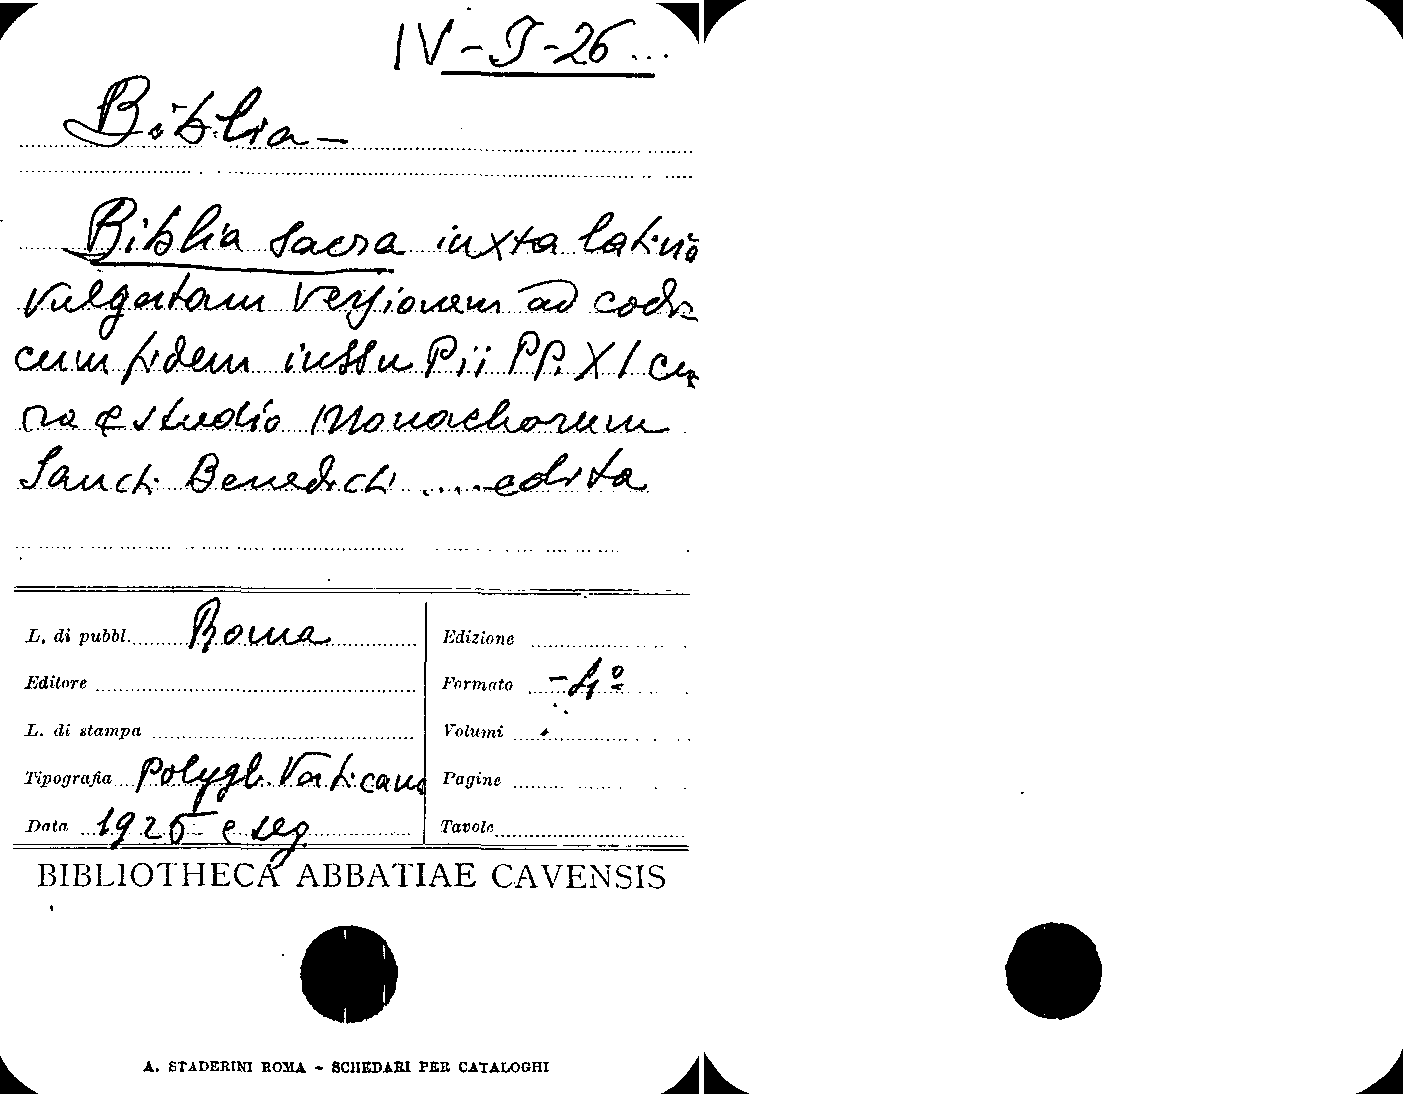 IV-J-26...
Biblia-
Biblia sacra iuxta latinā
Vulgatam Versionem ad codi
cum fidem iussu Pii PP. XI cu
ra e studio Monachorum
Sancti Benedicti .... edita
L. di pubbl. Roma
Editore
L. di stampa
Tipografia Polygl. Vaticano
Data 1926 e seg
Edizione
Formato -4º
Volumi
Pagine
Tavole
BIBLIOTHECA ABBATIAE CAVENSIS
A. STADERINI ROMA - SCHEDARI PER CATALOGHI